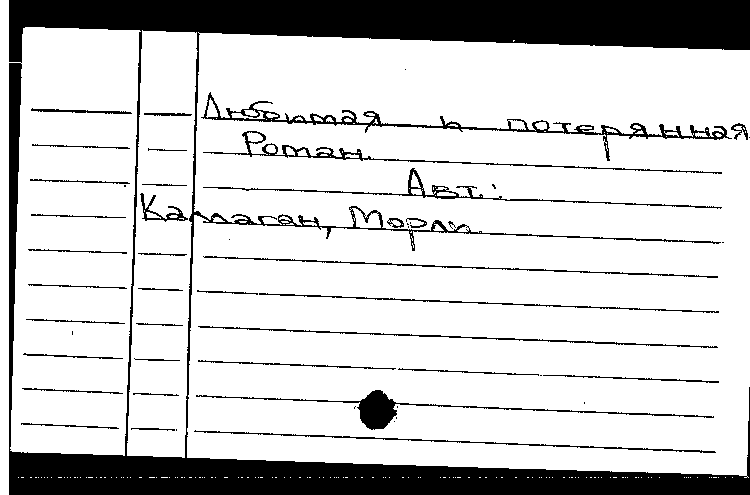 Любимая и потерянная
Роман.
Авт.:
Каллаган, Морли.